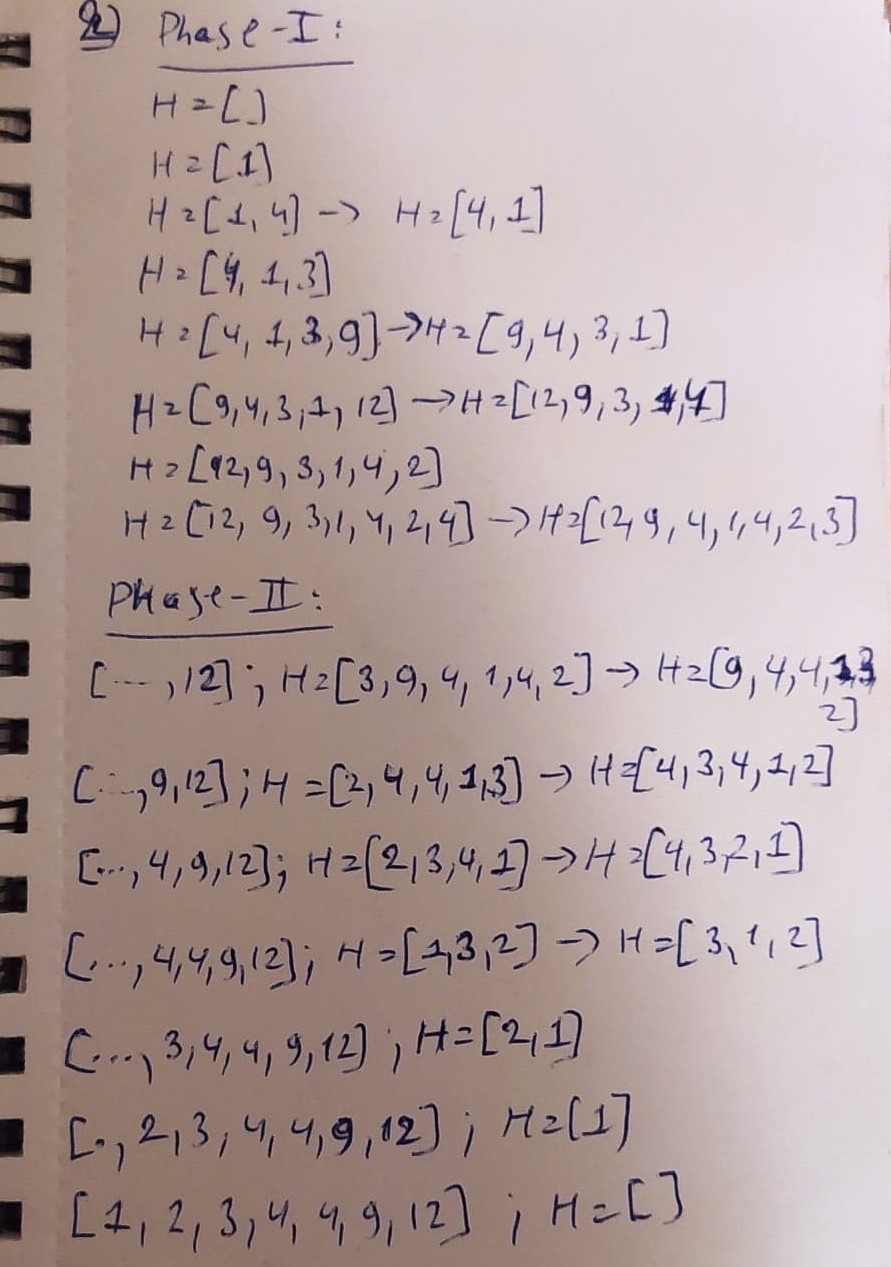 2) Phase-I:
H=[]
H=[1]
H=[1,4] -> H=[4,1]
H=[4,1,3]
H=[4,1,3,9] -> H=[9,4,3,1]
H=[9,4,3,1,12] -> H=[12,9,3,1,4]
H=[12,9,3,1,4,2]
H=[12,9,3,1,4,2,4] -> H=[12,9,4,1,4,2,3]
Phase-II:
[...,12]; H=[3,9,4,1,4,2] -> H=[9,4,4,1,3
2]
[...,9,12]; H=[2,4,4,1,3] -> H=[4,3,4,1,2]
[...,4,9,12]; H=[2,3,4,1] -> H=[4,3,2,1]
[...,4,4,9,12]; H=[1,3,2] -> H=[3,1,2]
[...,3,4,4,9,12]; H=[2,1]
[.,2,3,4,4,9,12]; H=[1]
[1,2,3,4,4,9,12]; H=[]